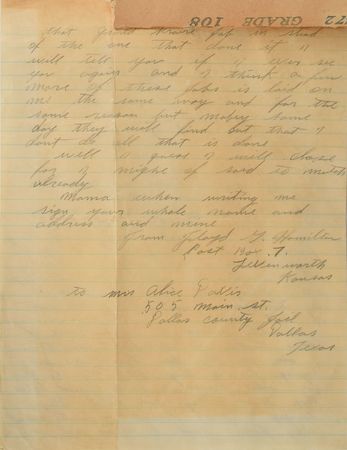 GRADE 108
172
that job in stead
of the one that done it I
will tell you if I ever see
you again and I think a few
more of these jobs is laid on
me the same way and for the
same reason but maby some
day they will find out that I
dont do all that is done
well I guess I will close
for I might of said to much
already
Mama when writing me
sign your whole name and
address and mine
from Floyd Hamilton
Post Box. 7.
Kansas
to mrs Alice
505 main st.
Dallas County Jail
Dallas
Texas